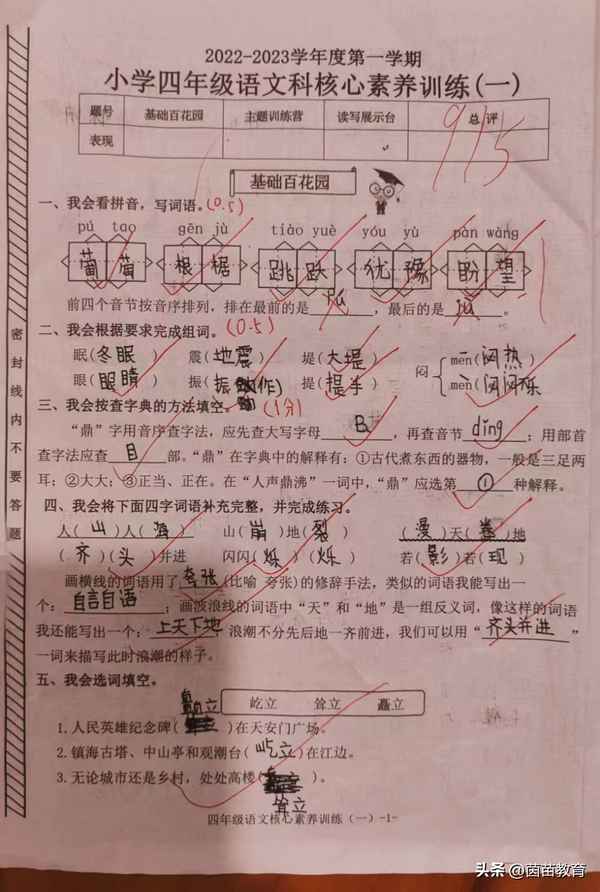 2022-2023学年度第一学期
小学四年级语文科核心素养训练(一)
题号 基础百花园 主题训练营 读写展示台 总评
表现
基础百花园
一、我会看拼音，写词语。(0.5)
pú tao gēn jù tiào yuè yóu yù pàn wàng
葡萄 根据 跳跃 犹豫 盼望
前四个音节按音序排列，排在最前的是 ，最后的是 。
二、我会根据要求完成组词。(0.5)
眠(冬眠) 震(地震) 堤(大堤) 闷 mēn(闷热)
眼(眼睛) 振( ) 提(提手) mèn(闷闷不乐)
三、我会按查字典的方法填空。(1分)
“鼎”字用音序查字法，应先查大写字母 ，再查音节 dǐng ；用部首
查字法应查 目 部。“鼎”在字典中的解释有：①古代煮东西的器物，一般是三足两
耳；②大大；③正当、正在。在“人声鼎沸”一词中，“鼎”应选第 ① 种解释。
四、我会将下面四字词语补充完整，并完成练习。
人(山)人(海) 山(崩)地(裂) (漫)天(卷)地
(齐)(头)并进 闪闪(烁)(烁) 若(影)若(现)
画横线的词语用了 夸张 (比喻 夸张)的修辞手法，类似的词语我能写出一
个： 自言自语 ；画波浪线的词语中“天”和“地”是一组反义词，像这样的词语
我还能写出一个： 上天下地 浪潮不分先后地一齐前进，我们可以用“ 齐头并进 ”
一词来描写此时浪潮的样子。
五、我会选词填空。
屹立 耸立 矗立
1.人民英雄纪念碑(矗立)在天安门广场。
2.镇海古塔、中山亭和观潮台(屹立)在江边。
3.无论城市还是乡村，处处高楼( )。
耸立
四年级语文核心素养训练(一) -1-
密封线内不要答题
头条 @茵苗教育